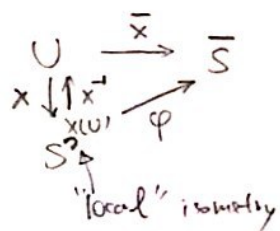 U x̄ S̄
x x⁻¹
x(U) φ
S
"local" isometry